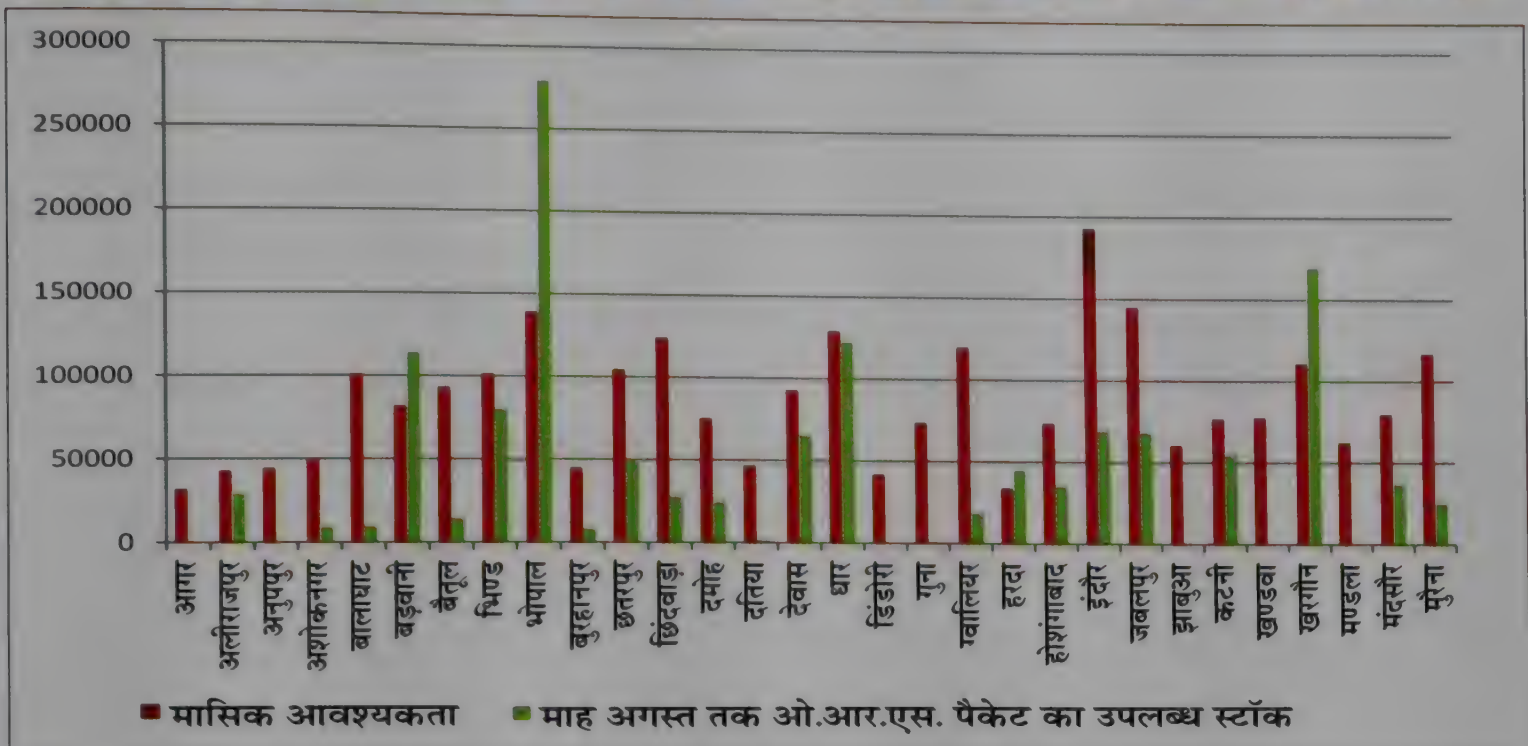 300000
250000
200000
150000
100000
50000
0
आगर
अलीराजपुर
अनुपपुर
अशोकनगर
बालाघाट
बड़वानी
बैतूल
भिण्ड
भोपाल
बुरहानपुर
छतरपुर
छिंदवाड़ा
दमोह
दतिया
देवास
धार
डिंडोरी
गुना
ग्वालियर
हरदा
होशंगाबाद
इंदौर
जबलपुर
झाबुआ
कटनी
खण्डवा
खरगौन
मण्डला
मंदसौर
मुरैना
मासिक आवश्यकता माह अगस्त तक ओ.आर.एस. पैकेट का उपलब्ध स्टॉक